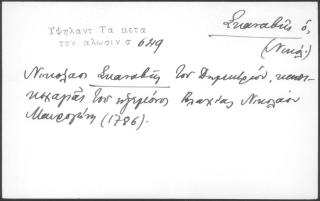 Υψηλαντ Τα μετα
την αλωσιν σ 649
Σκαναβής ὁ,
(Νικόλ.)
Νικόλαος Σκαναβής τοῦ Δημητρίου,
τοῦ ἡγεμόνος Βλαχίας Νικολάου
Μαυρογένη (1786).